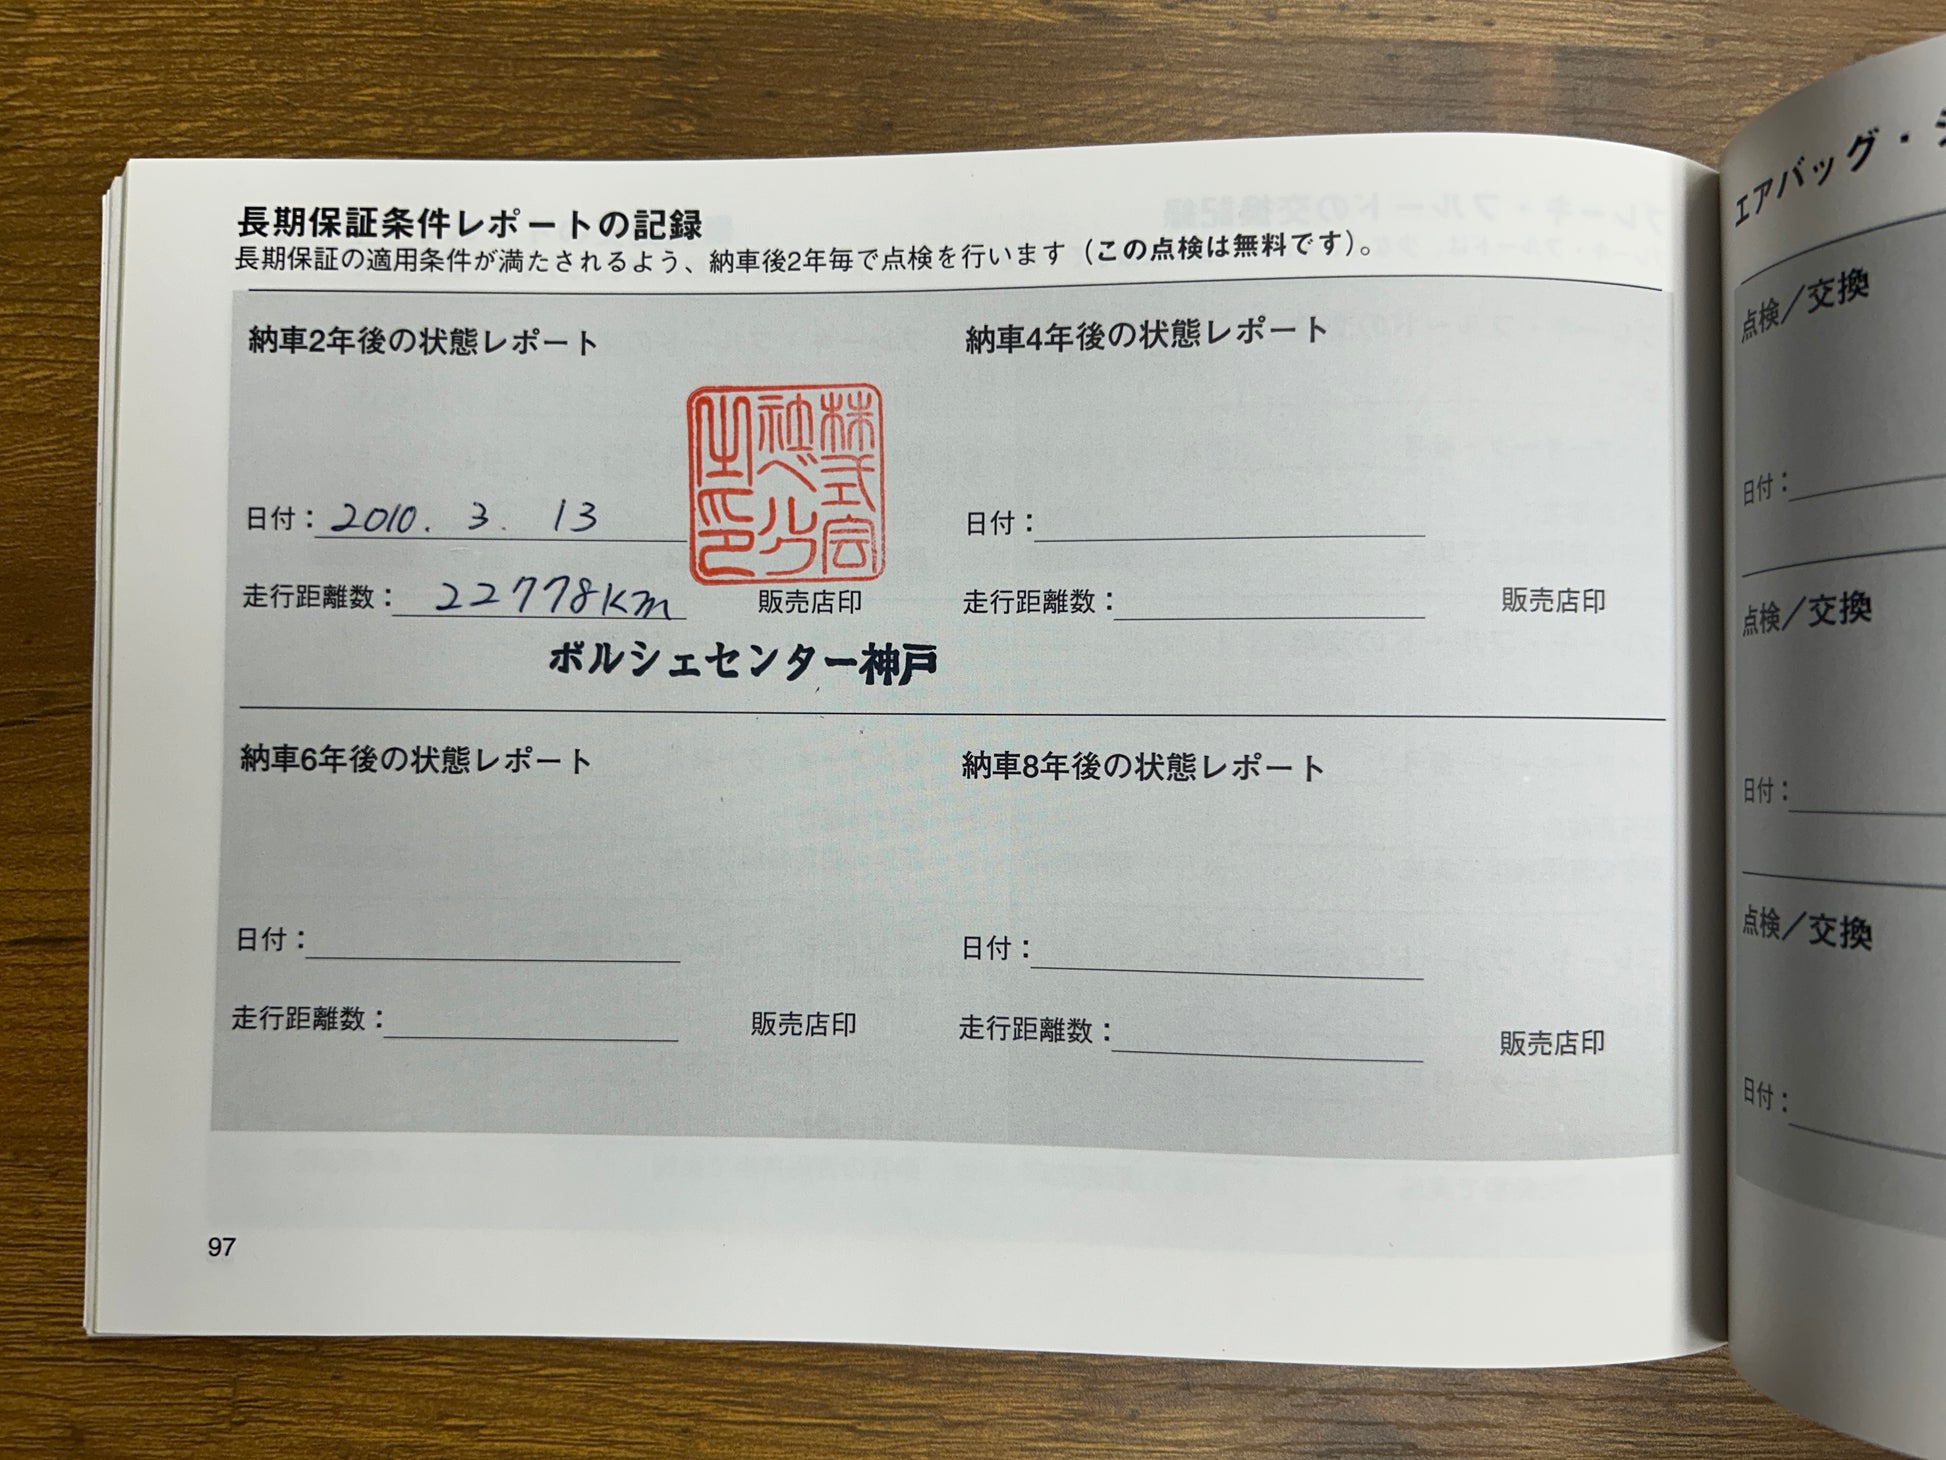 長期保証条件レポートの記録
長期保証の適用条件が満たされるよう、納車後2年毎で点検を行います（この点検は無料です）。
納車2年後の状態レポート
株式会社ベルク之印
日付：2010. 3. 13
走行距離数：22778km
販売店印
ポルシェセンター神戸
納車4年後の状態レポート
日付：
走行距離数：
販売店印
納車6年後の状態レポート
日付：
走行距離数：
販売店印
納車8年後の状態レポート
日付：
走行距離数：
販売店印
97
エアバッグ・シ
点検／交換
日付：
点検／交換
日付：
点検／交換
日付：